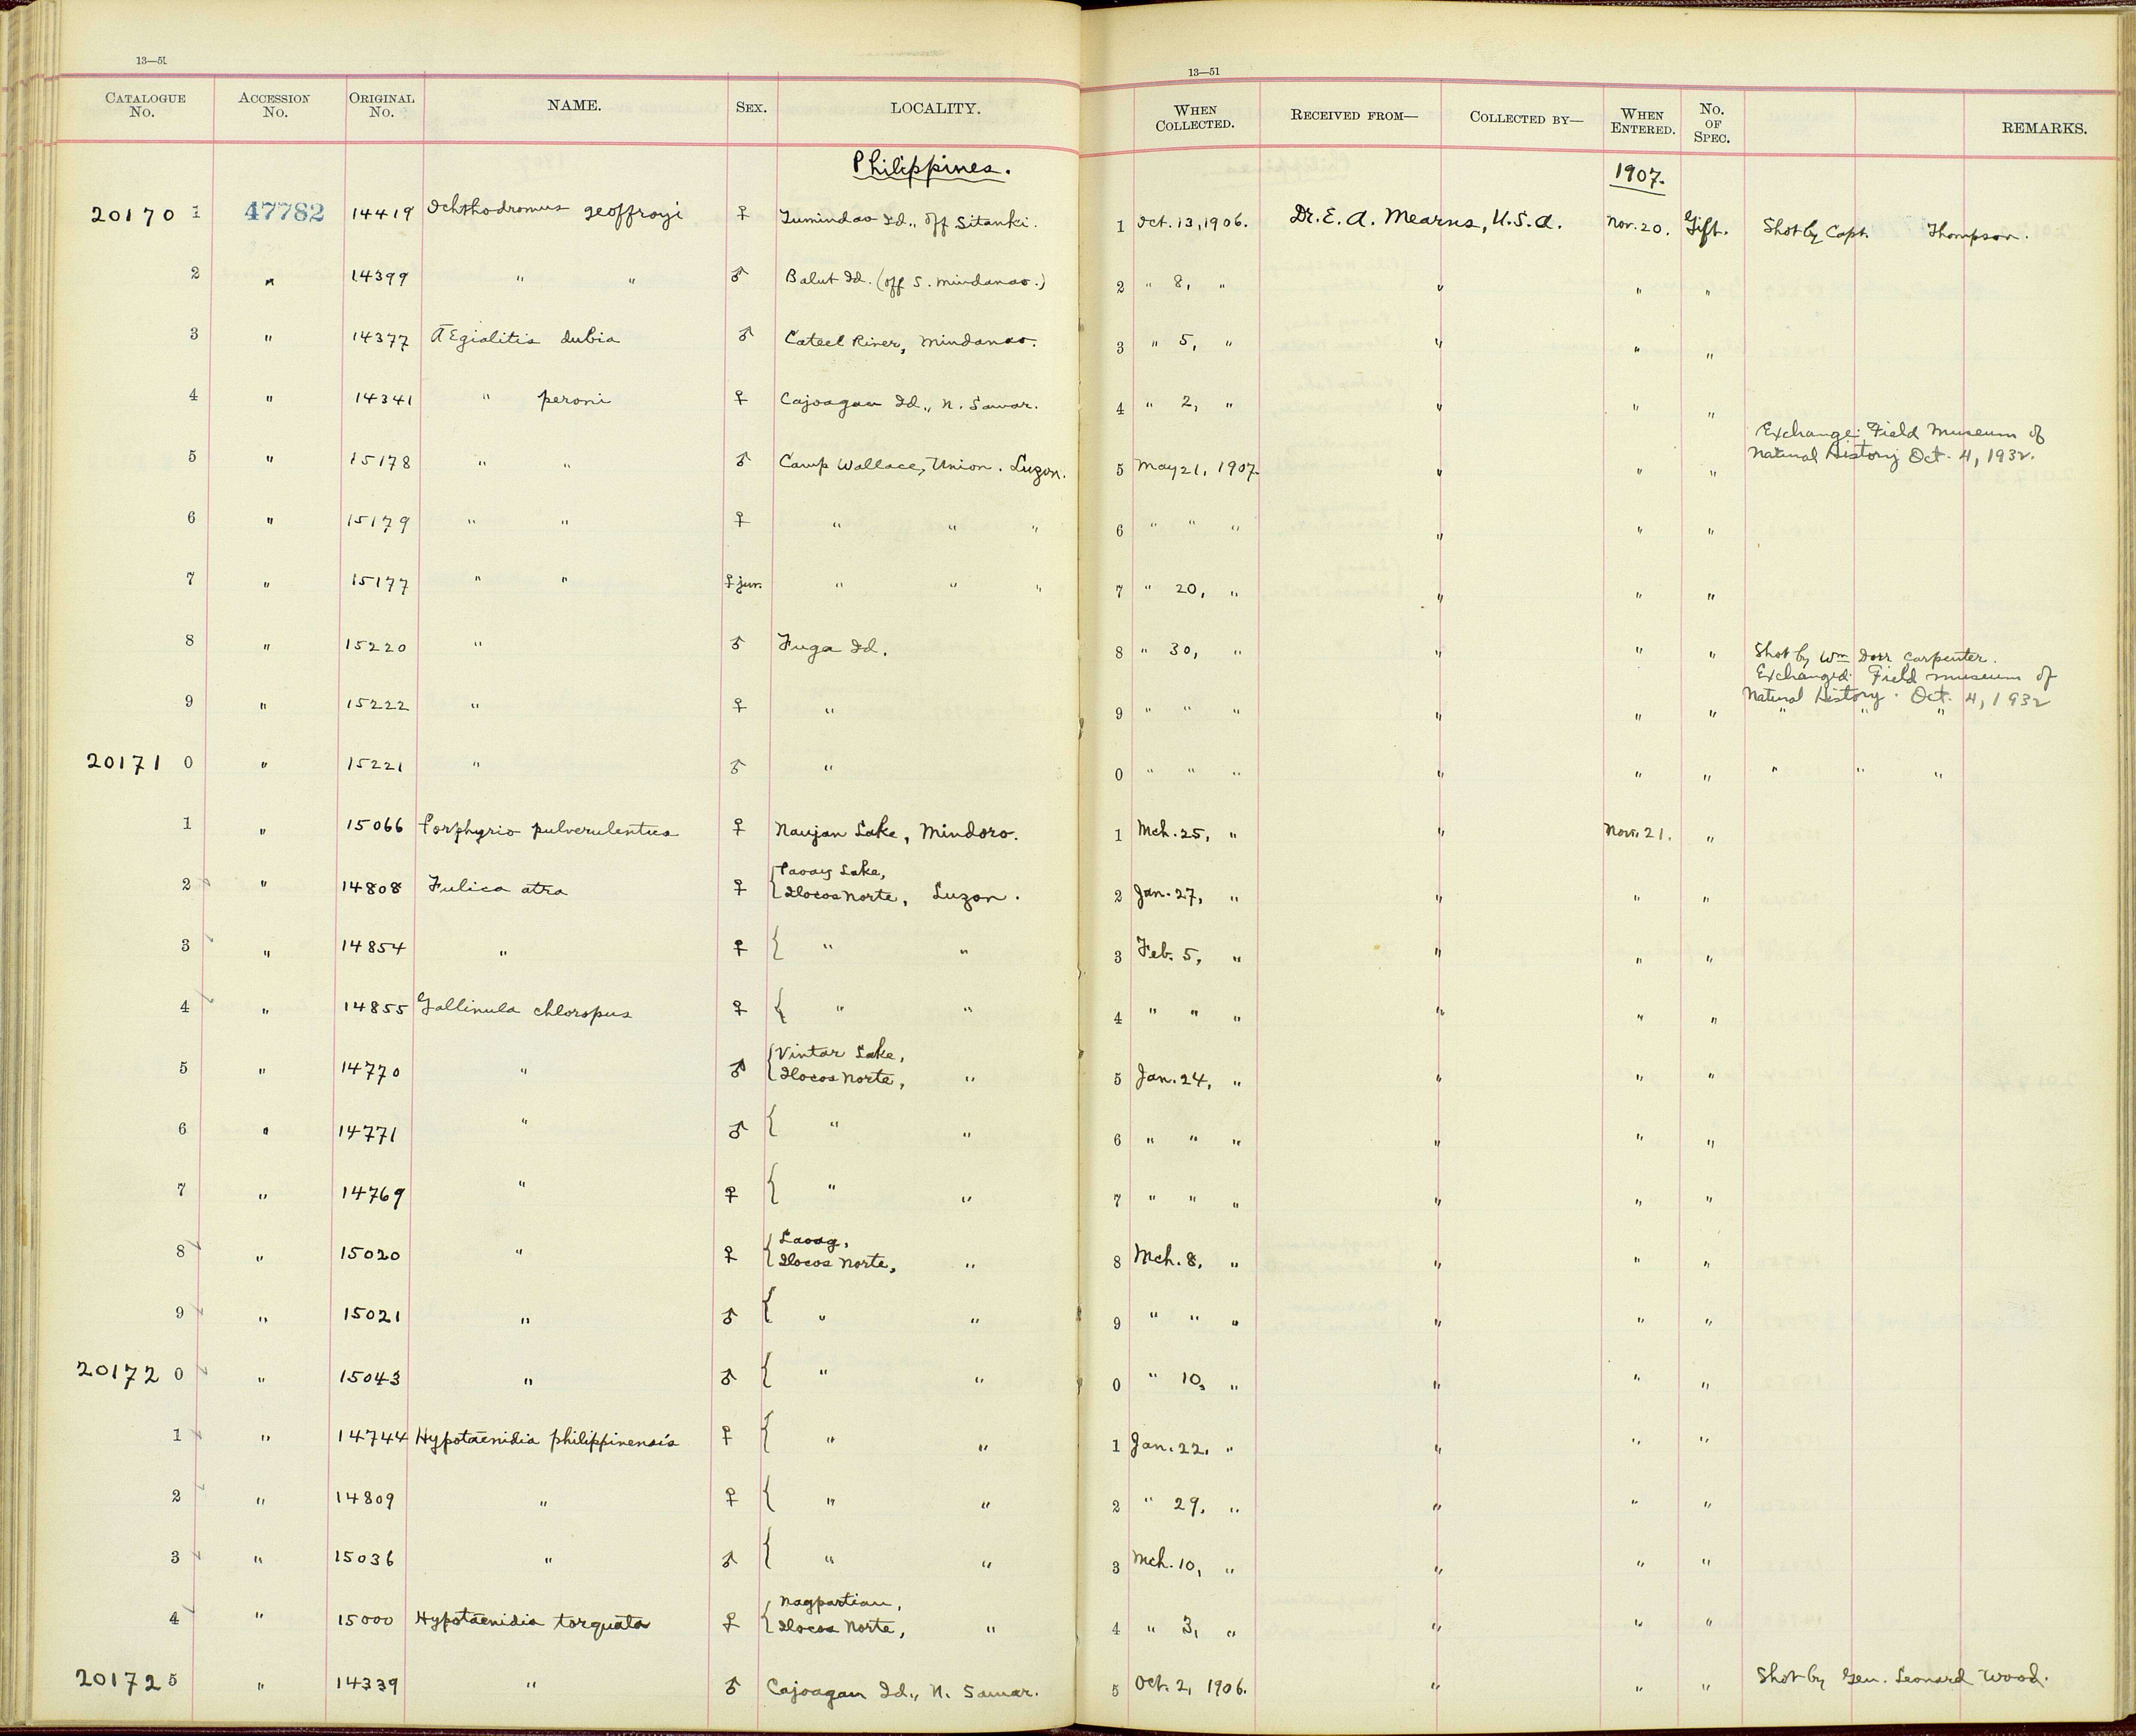 13—51
13—51
CATALOGUE No. ACCESSION No. ORIGINAL No. NAME. SEX. LOCALITY. WHEN COLLECTED. RECEIVED FROM— COLLECTED BY— WHEN ENTERED. NO. OF SPEC. REMARKS.
Philippines. 1907.
20170 1 47782 14419 Ochthodromus geoffroyi ♀ Tumindao Id., off Sitanki. 1 Oct. 13, 1906. Dr. E. A. Mearns, U.S.A. Nov. 20. Gift. Shot by Capt. Thompson.
2 " 14399 " " ♂ Balut Id. (off S. Mindanao.) 2 " 8, " " " "
3 " 14377 Ægialitis dubia ♂ Cateel River, Mindanao. 3 " 5, " " " "
4 " 14341 " peroni ♀ Cajoagan Id., N. Samar. 4 " 2, " " " "
5 " 15178 " " ♂ Camp Wallace, Union. Luzon. 5 May 21, 1907. " " " Exchange: Field Museum of
Natural History Oct. 4, 1932.
6 " 15179 " " ♀ " " " 6 " " " " " "
7 " 15177 " " ♀ juv. " " " 7 " 20, " " " "
8 " 15220 " ♂ Fuga Id. 8 " 30, " " " " Shot by Wm Dorr Carpenter.
Exchanged: Field Museum of
Natural History. Oct. 4, 1932
9 " 15222 " ♀ " 9 " " " " " " " " "
20171 0 " 15221 " ♂ " 0 " " " " " " " " "
1 " 15066 Porphyrio pulverulentus ♀ Naujan Lake, Mindoro. 1 Mch. 25, " " Nov. 21. "
2 " 14808 Fulica atra ♀ { Paoay Lake,
Ilocos Norte, Luzon. 2 Jan. 27, " " " "
3 " 14854 " ♀ { " " 3 Feb. 5, " " " "
4 " 14855 Gallinula chloropus ♀ { " " 4 " " " " " "
5 " 14770 " ♂ { Vintar Lake,
Ilocos Norte, " 5 Jan. 24, " " " "
6 " 14771 " ♂ { " " 6 " " " " " "
7 " 14769 " ♀ { " " 7 " " " " " "
8 " 15020 " ♀ { Laoag,
Ilocos Norte, " 8 Mch. 8, " " " "
9 " 15021 " ♂ { " " 9 " " " " " "
20172 0 " 15043 " ♂ { " " 0 " 10, " " " "
1 " 14744 Hypotænidia philippinensis ♀ { " " 1 Jan. 22, " " " "
2 " 14809 " ♀ { " " 2 " 29, " " " "
3 " 15036 " ♂ { " " 3 Mch. 10, " " " "
4 " 15000 Hypotænidia torquata ♀ { Nagpartian,
Ilocos Norte, " 4 " 3, " " " "
20172 5 " 14339 " ♂ Cajoagan Id., N. Samar. 5 Oct. 2, 1906. " " " Shot by Gen. Leonard Wood.